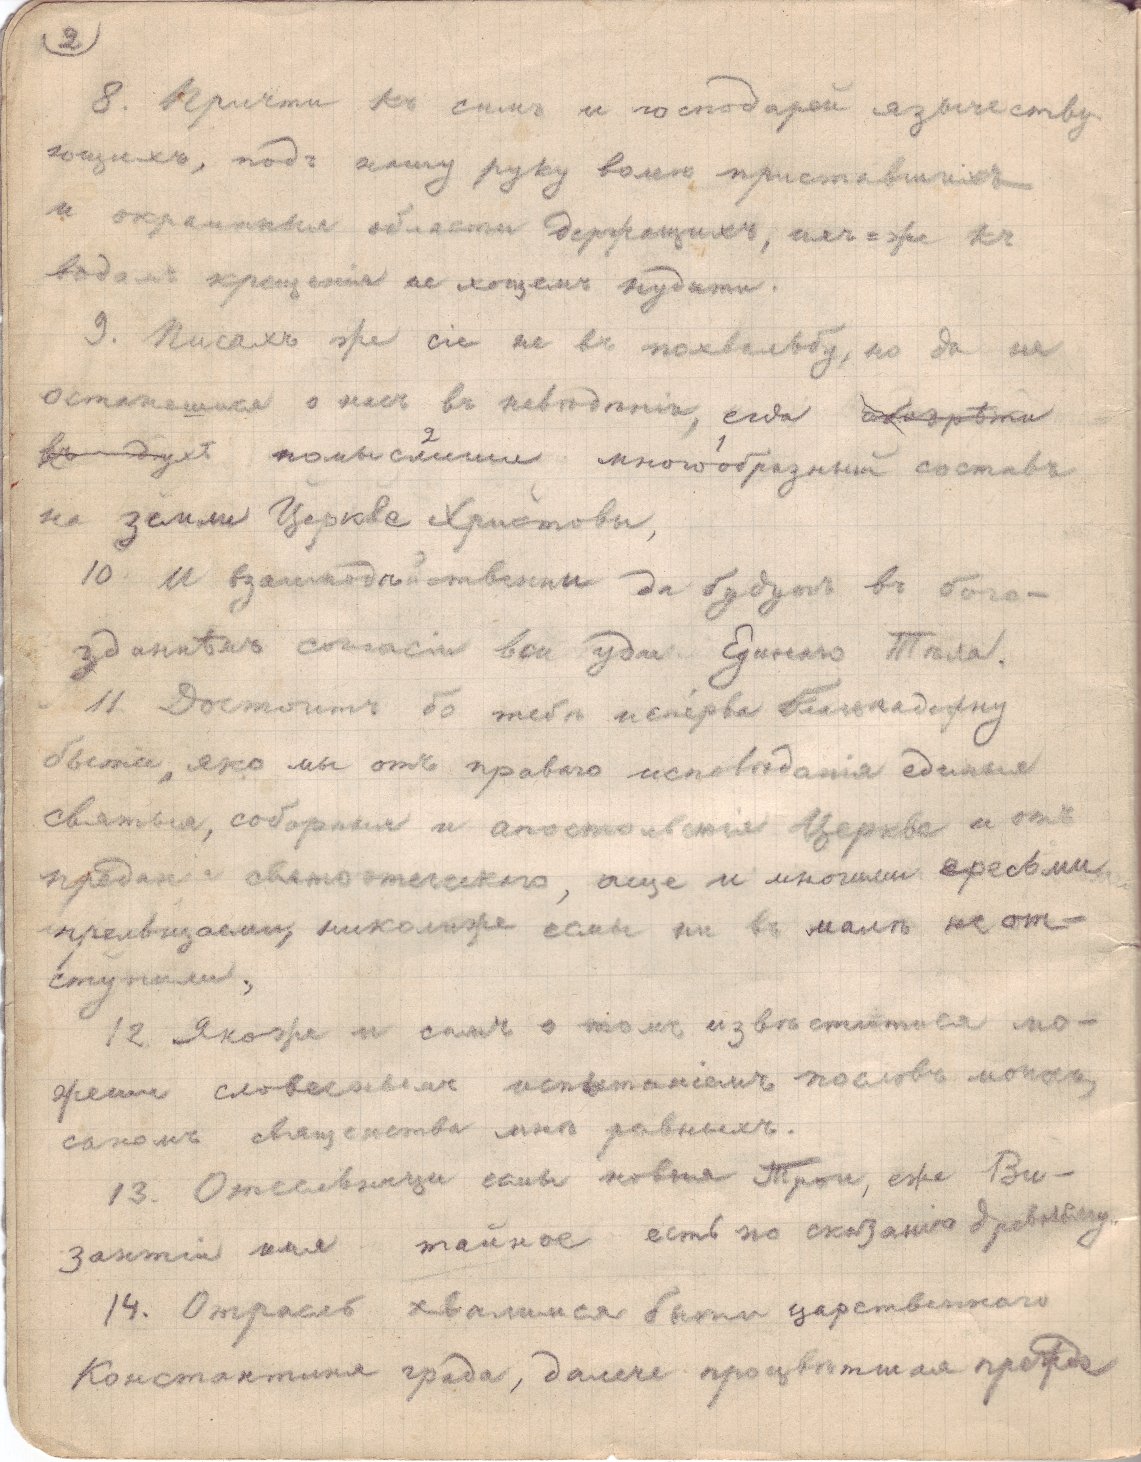 2
8. Причти къ симъ и господарей язычеству-
ющихъ, подъ нашу руку волею приставшихъ
и окраинныя области держащихъ, ихъ-же къ
водамъ крещенія не хощемъ нудити.
9. Писахъ же сіе не въ похвальбу, но да не
останешися о насъ въ невѣдѣніи, егда обозрѣти
въ духѣ помыслиши многообразный составъ
на земли Церкве Христовы,
10. И взаимодѣйственни да будутъ въ бого-
зданнѣмъ согласіи вси уди Единаго Тѣла.
11. Достоитъ бо тебѣ исперва благонадежну
быти, яко мы отъ праваго исповѣданія единыя
святыя, соборныя и апостольскія Церкве и отъ
преданія святоотеческаго, аще и многими ересьми
прельщаеми, николиже есмы ни въ малѣ не от-
ступили,
12. Якоже и самъ о томъ извѣститися мо-
жеши словеснымъ испытаніемъ пословъ моихъ,
саномъ священства мнѣ равныхъ.
13. Отсельницы есмы новыя Трои, еже Ви-
зантіи имя тайное есть по сказанію древнему.
14. Отрасль хвалимся быти царственнаго
Константиня града, далече процвѣтшая